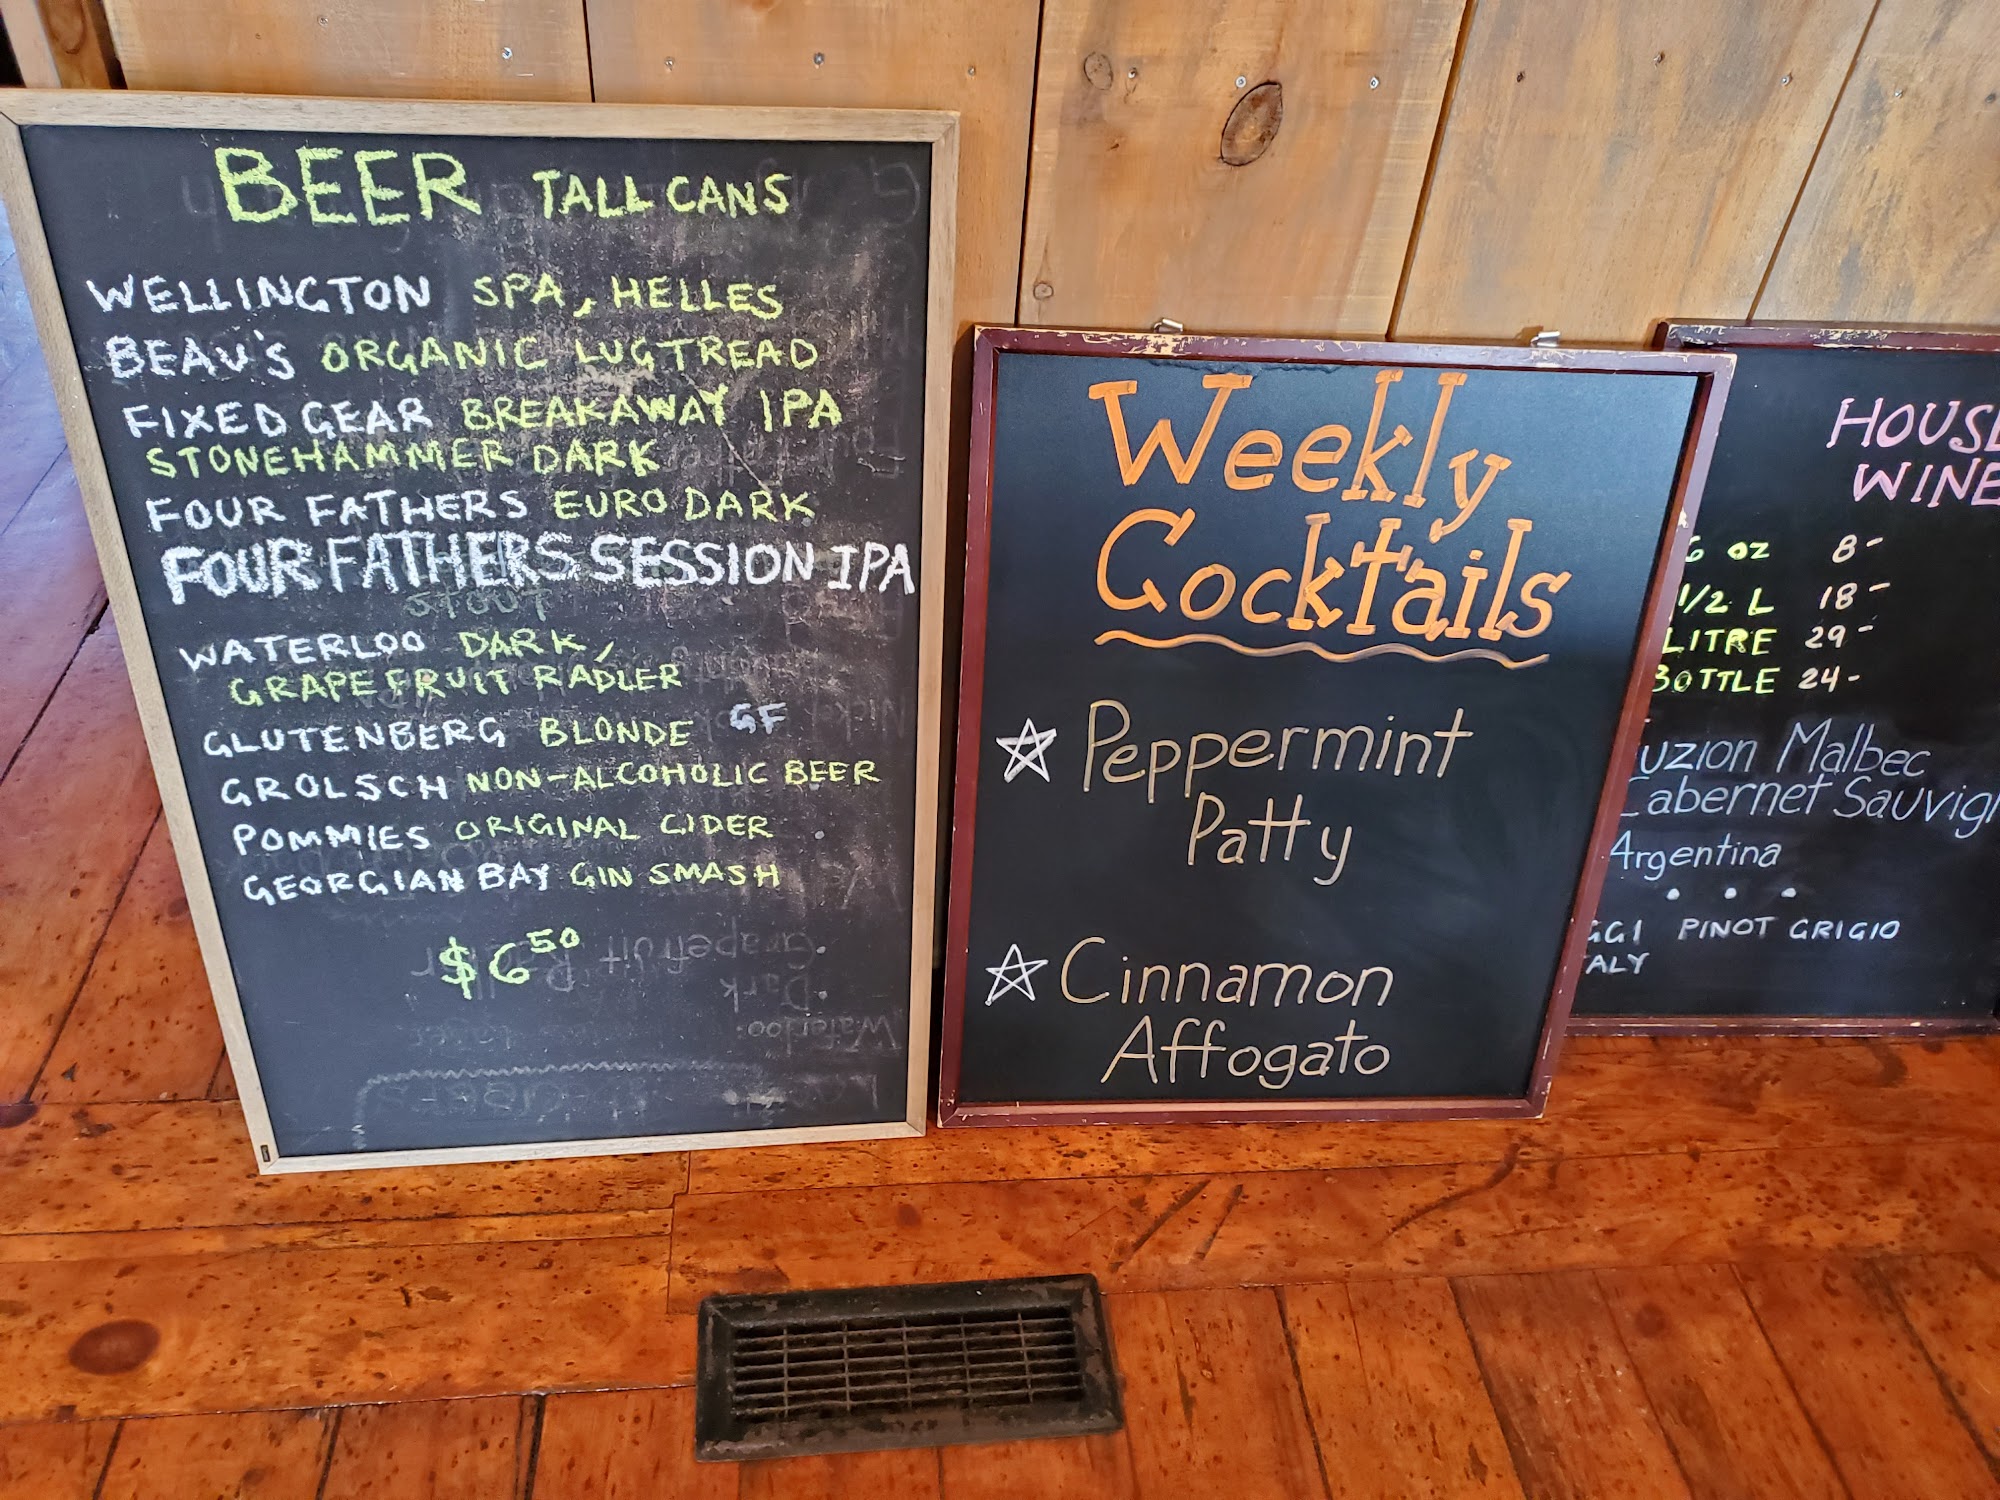 BEER TALL CANS
WELLINGTON SPA, HELLES
BEAU'S ORGANIC LUGTREAD
FIXED GEAR BREAKAWAY IPA
STONEHAMMER DARK
FOUR FATHERS EURO DARK
FOUR FATHERS SESSION IPA
STOUT
WATERLOO DARK,
GRAPEFRUIT RADLER
GLUTENBERG BLONDE GF
GROLSCH NON-ALCOHOLIC BEER
POMMIES ORIGINAL CIDER
GEORGIAN BAY GIN SMASH
$6 50
Grapefruit
Dark
Waterloo
Weekly
Cocktails
Peppermint
Patty
Cinnamon
Affogato
HOUSE
WINE
6 oz 8-
1/2 L 18-
LITRE 29-
BOTTLE 24-
uzion Malbec
Cabernet Sauvig
Argentina
GGI PINOT GRIGIO
ALY